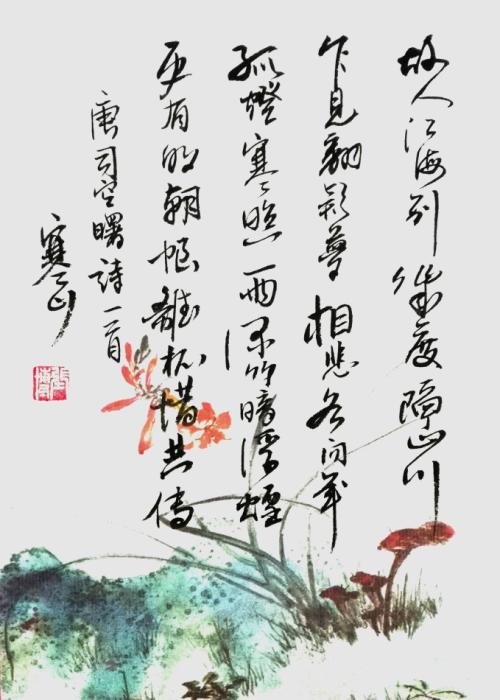 故人江海别幾度隔山川
乍見翻疑夢相悲各问年
孤燈寒照雨深竹暗浮煙
更有明朝恨離杯惜共傳
唐司空曙詩一首
寒山